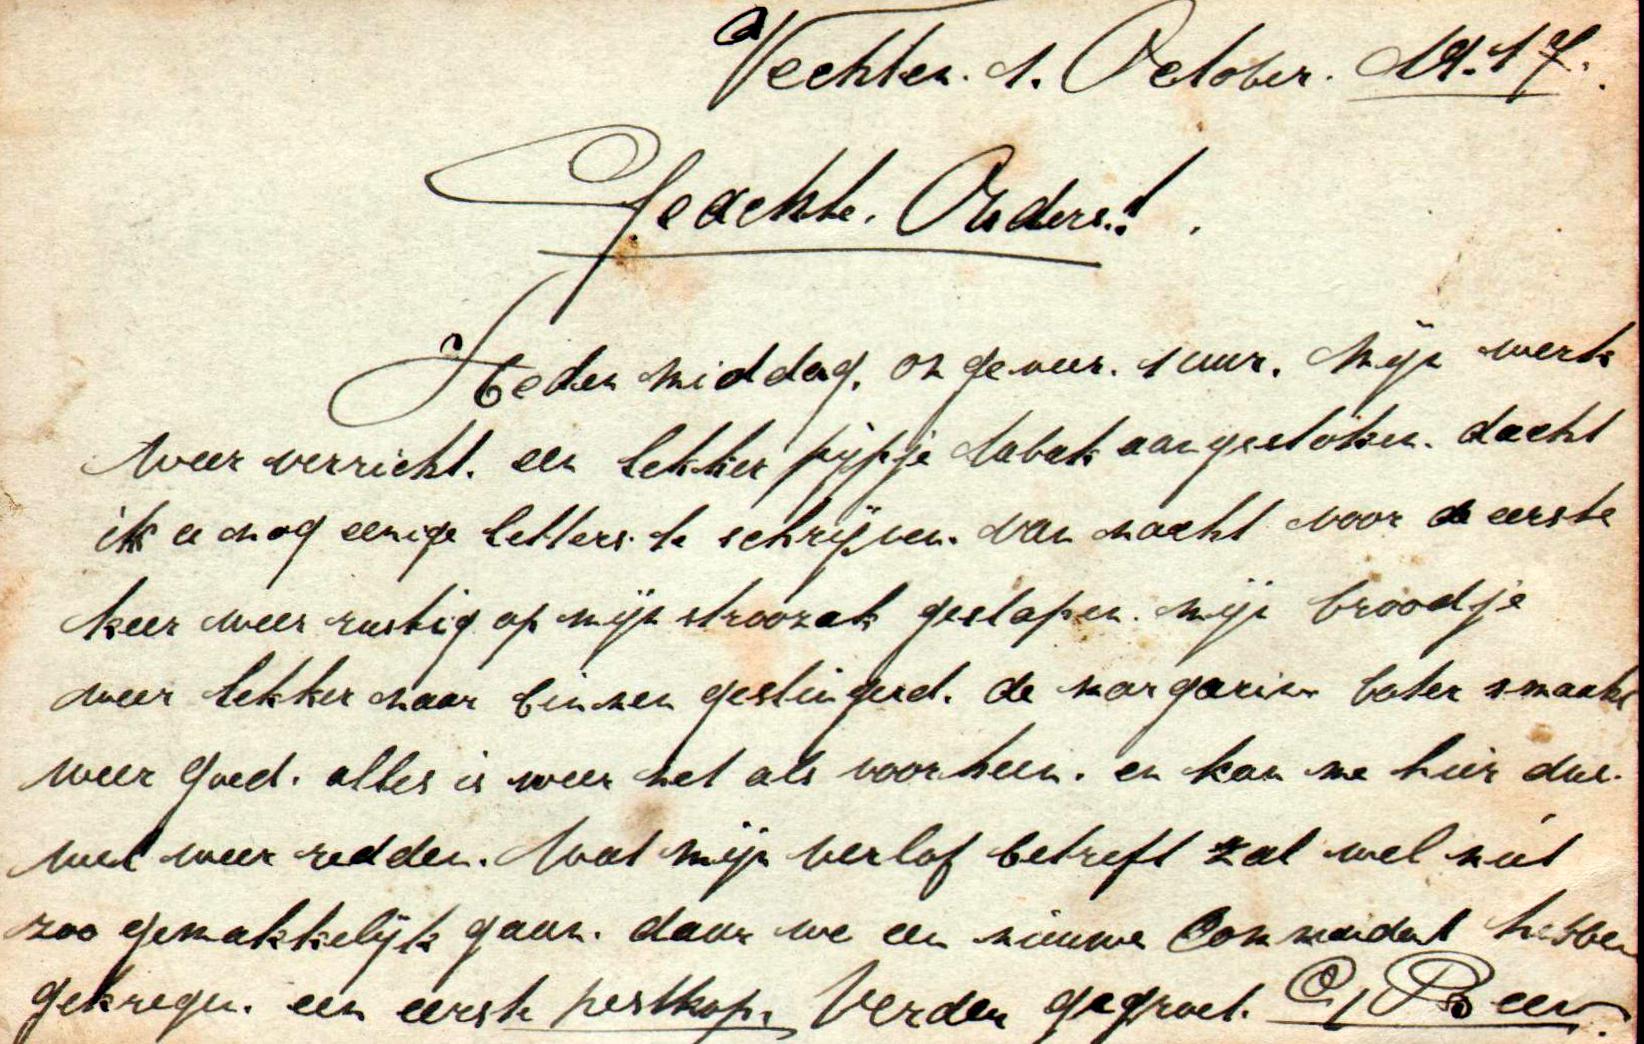 Vechten. 1. October. 19.17.
Geachte. Ouders.!
Heden middag. ongeveer. 1 uur. Mijn werk
weer verricht. een lekker pijpje tabak aangestoken. dacht
ik u nog eenige letters te schrijven. van nacht voor de eerste
keer weer rustig op mijn stroozak geslapen. mijn broodje
weer lekker naar binnen geslingerd. de margarine boter smaakt
weer goed. alles is weer net als voorheen. en kan me hier dus.
wel weer redden. Wat mijn verlof betreft zal wel niet
zoo gemakkelijk gaan. daar we een nieuwe Commandant hebben
gekregen. een eerste pestkop. Verder gegroet.